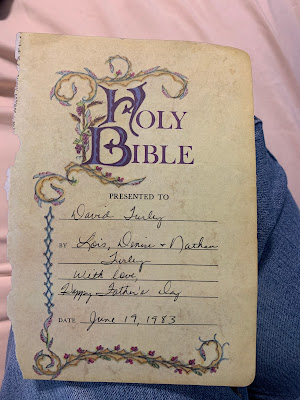 HOLY
BIBLE
PRESENTED TO
David Turley
BY Lois, Denise & Nathan
Turley
With love,
Happy Father's Day
DATE June 19, 1983